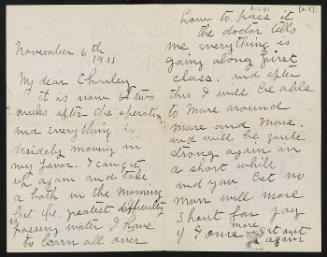 November 6th
1911
My dear Charley
it is now two
weeks after the operation
and everything is
moving in
my favor. I can get
up again and take
a bath in the morning
but the greatest difficulty
passing water I have
to learn all over
how to pass it
the doctor tells
me everything is
going along first
class. and after
this I will be able
to move around
more and more.
and will be quite
strong again in
a short while
and you bet no
man will more
shout for joy
if I once more get out
again